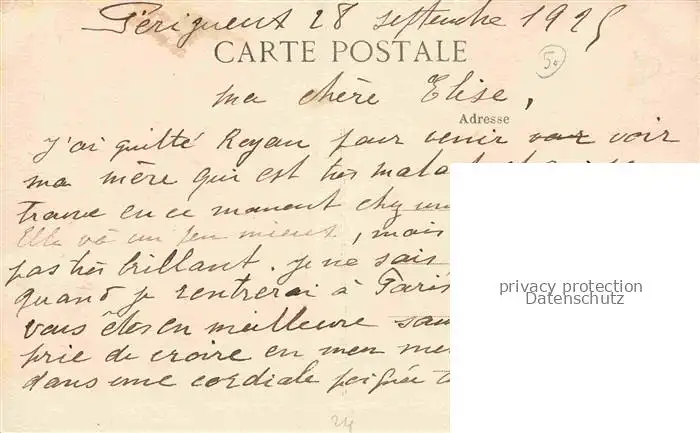 Périgueux 28 septembre 1925
CARTE POSTALE
50
ma chère Elise,
Adresse
J'ai quitté Royan pour venir voir voir
ma mère qui est très mala
trouve en ce moment chez un
Elle va un peu mieux, mais
pas très brillant. je ne sais
quand je rentrerai à Paris
vous êtes en meilleure san
prie de croire en mon me
dans une cordiale poignée
privacy protection
Datenschutz
24